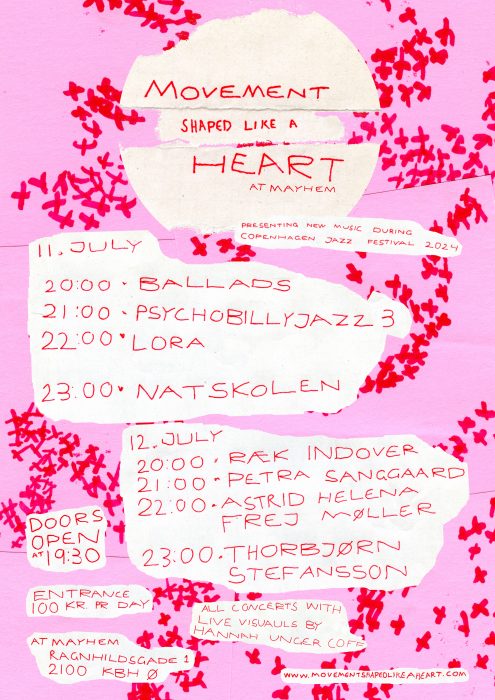 MOVEMENT
SHAPED LIKE A
HEART
AT MAYHEM
PRESENTING NEW MUSIC DURING
COPENHAGEN JAZZ FESTIVAL 2024
11. JULY
20:00 · BALLADS
21:00 · PSYCHOBILLYJAZZ 3
22:00 · LORA
23:00 · NATSKOLEN
12. JULY
20:00 · RÆK INDOVER
21:00 · PETRA SANGGAARD
22:00 · ASTRID HELENA
FREJ MØLLER
23:00 · THORBJØRN
STEFANSSON
DOORS
OPEN
AT 19:30
ENTRANCE
100 KR. PR DAY
ALL CONCERTS WITH
LIVE VISUAULS BY
HANNAH UNGER COFF
AT MAYHEM
RAGNHILDSGADE 1
2100 KBH Ø
WWW.MOVEMENTSHAPEDLIKEAHEART.COM